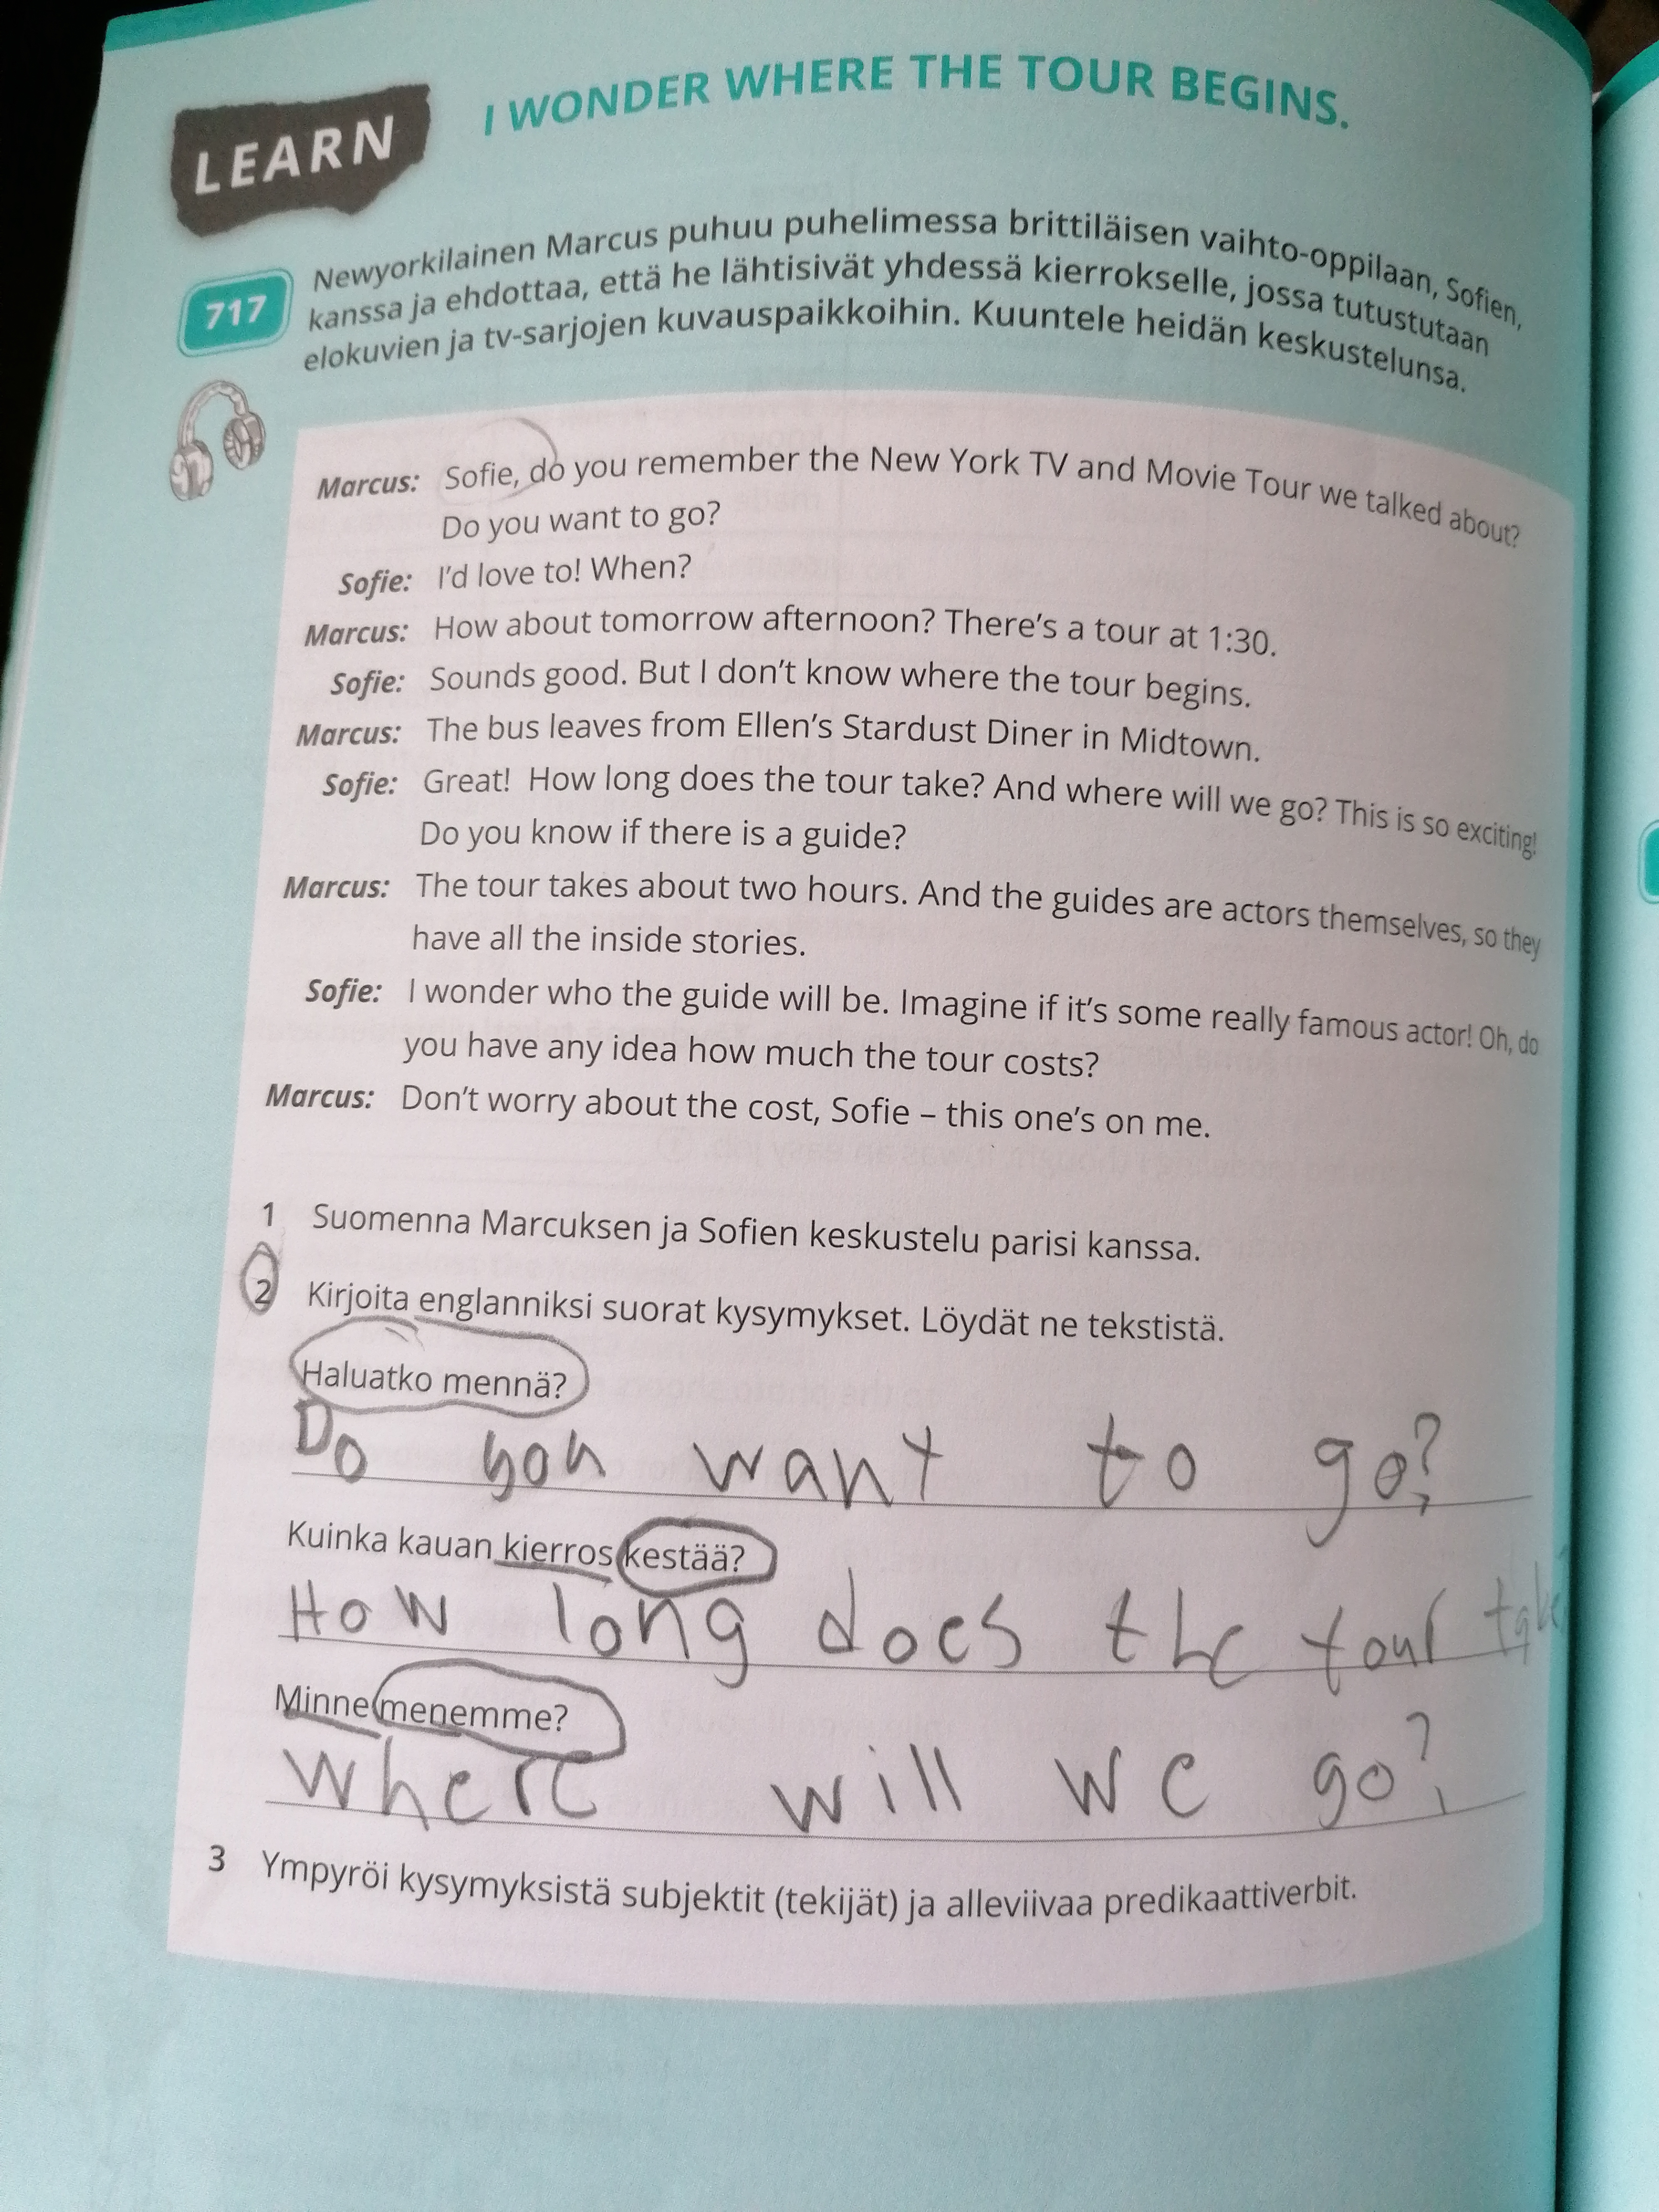 LEARN
I WONDER WHERE THE TOUR BEGINS.
717
Newyorkilainen Marcus puhuu puhelimessa brittiläisen vaihto-oppilaan, Sofien,
kanssa ja ehdottaa, että he lähtisivät yhdessä kierrokselle, jossa tutustutaan
elokuvien ja tv-sarjojen kuvauspaikkoihin. Kuuntele heidän keskustelunsa.
Marcus: Sofie, do you remember the New York TV and Movie Tour we talked about?
Do you want to go?
Sofie: I'd love to! When?
Marcus: How about tomorrow afternoon? There's a tour at 1:30.
Sofie: Sounds good. But I don't know where the tour begins.
Marcus: The bus leaves from Ellen's Stardust Diner in Midtown.
Sofie: Great! How long does the tour take? And where will we go? This is so exciting!
Do you know if there is a guide?
Marcus: The tour takes about two hours. And the guides are actors themselves, so they
have all the inside stories.
Sofie: I wonder who the guide will be. Imagine if it's some really famous actor! Oh, do
you have any idea how much the tour costs?
Marcus: Don't worry about the cost, Sofie – this one's on me.
1 Suomenna Marcuksen ja Sofien keskustelu parisi kanssa.
2 Kirjoita englanniksi suorat kysymykset. Löydät ne tekstistä.
Haluatko mennä?
Do you want to go?
Kuinka kauan kierros kestää?
How long does the tour take
Minne menemme?
where will we go?
3 Ympyröi kysymyksistä subjektit (tekijät) ja alleviivaa predikaattiverbit.